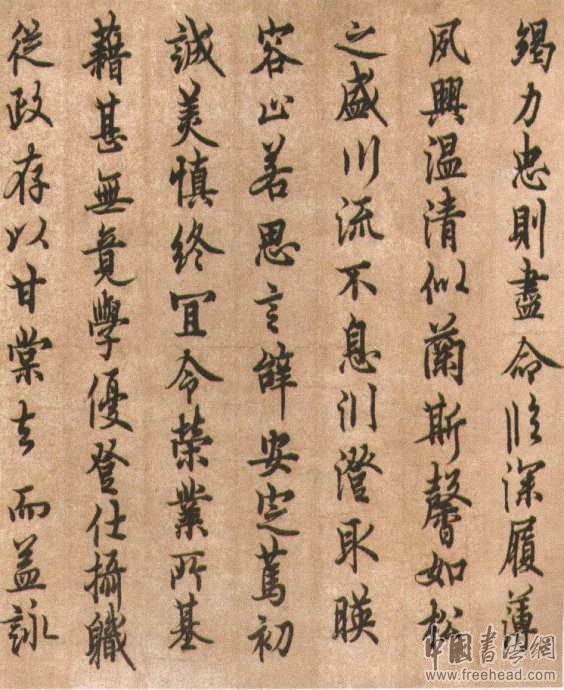 竭力忠則盡命臨深履薄
夙興温清似蘭斯馨如松
之盛川流不息川澄取暎
容止若思言辭安定篤初
誠美慎終宜令榮業所基
藉甚無竟學優登仕攝職
從政存以甘棠去而益詠
中國書法網
www.freehead.com